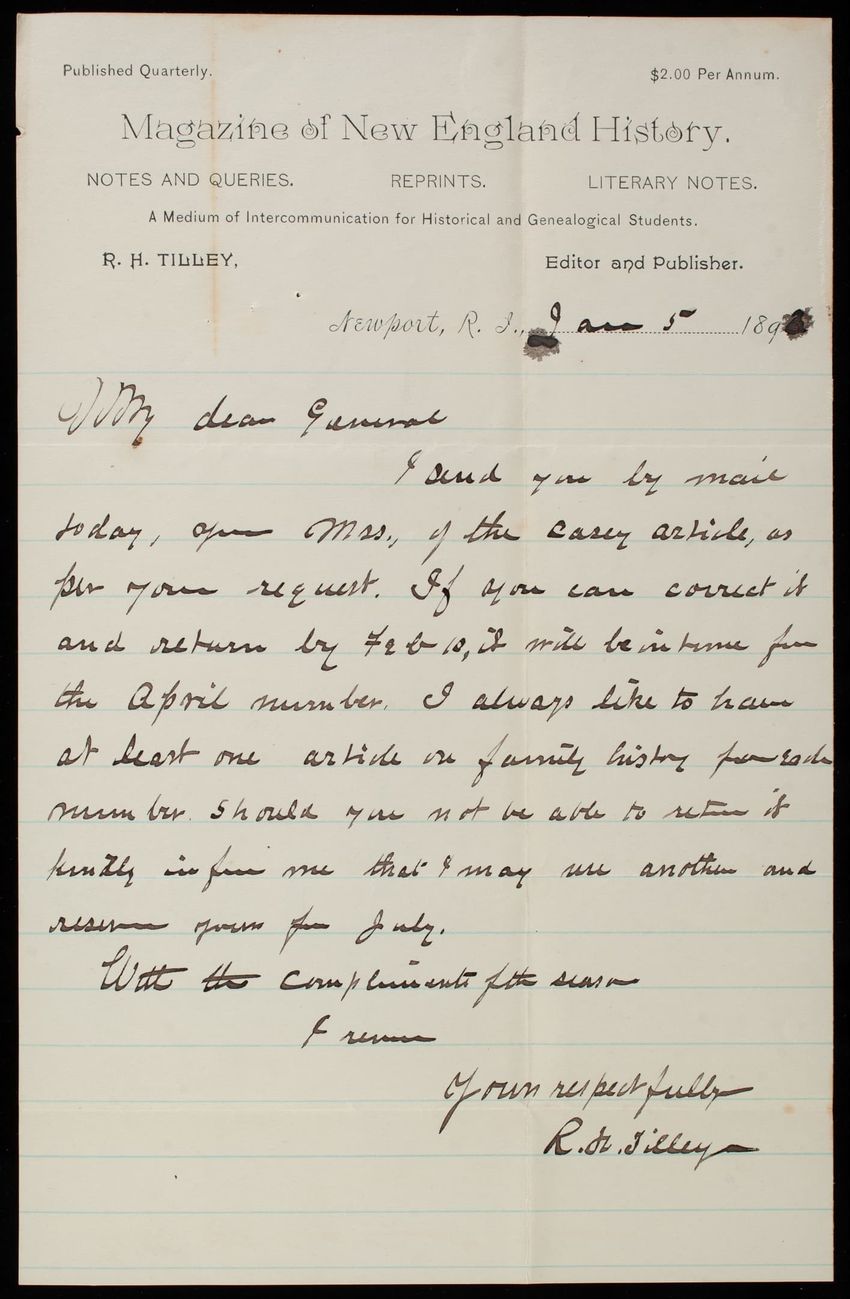 Published Quarterly. $2.00 Per Annum.
Magazine of New England History.
NOTES AND QUERIES. REPRINTS. LITERARY NOTES.
A Medium of Intercommunication for Historical and Genealogical Students.
R. H. TILLEY, Editor and Publisher.
Newport, R. I., Jan 5 189
My dear General
I send you by mail
today, your Mss., of the Casey article, as
per your request. If you can correct it
and return by Feb 10, it will be in time for
the April number. I always like to have
at least one article on family history for each
number. Should you not be able to return it
kindly inform me that I may use another and
reserve yours for July.
With the compliments of the season
I remain
Yours respectfully
R. H. Tilley